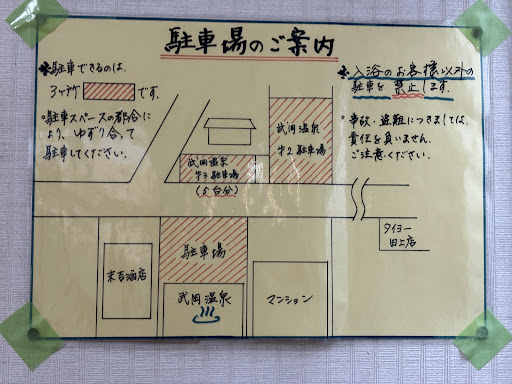 駐車場のご案内
※駐車できるのは、
3ヶ所 です。
・駐車スペースの都合に
より、ゆずり合って
駐車してください。
※入浴のお客様以外の
駐車を禁止します。
・事故・盗難につきましては、
責任を負いません。
ご注意ください。
武岡温泉
牛2駐車場
武岡温泉
牛3駐車場
(5台分)
駐車場
武岡温泉
末吉酒店
マンション
タイヨー
田上店